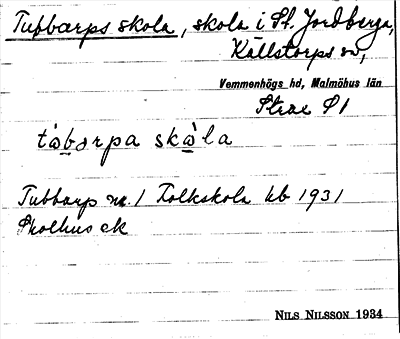 Tubbarps skola, skola i St. Jordberga,
Källstorps sn,
Vemmenhögs hd, Malmöhus län
Skolhus ek
Tubbarp nr. 1 Folkskola kb 1931
NILS NILSSON 1934